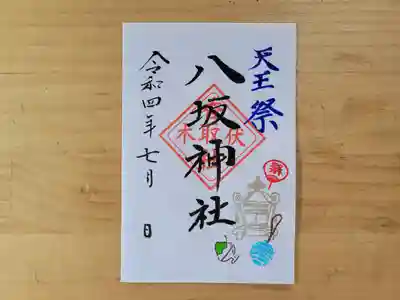 天王祭
八坂神社
木取伏
令和四年七月 日